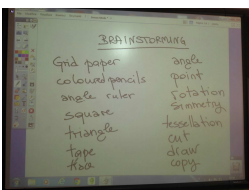 BRAINSTORMING
Grid paper
coloured pencils
angle ruler
square
triangle
tape
trace
angle
point
rotation
symmetry
tessellation
cut
draw
copy